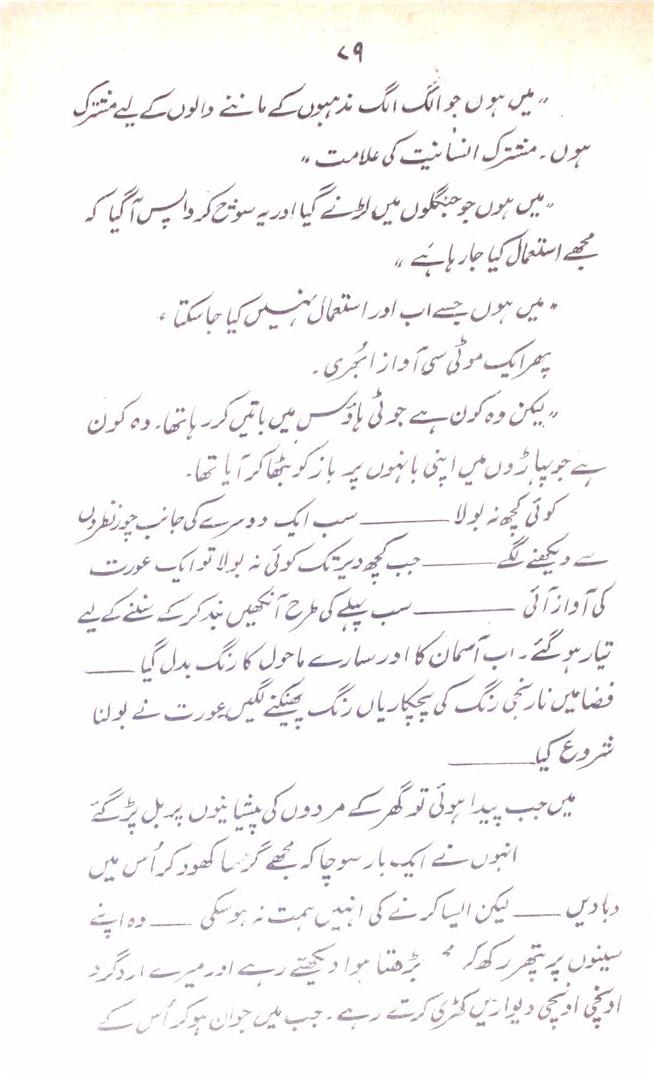 ۷۹
"میں ہوں جو الگ الگ مذہبوں کے ماننے والوں کے لیے مشترک
ہوں۔ مشترک انسانیت کی علامت"
"میں ہوں جو جنگلوں میں لڑنے گیا اور یہ سوچ کر واپس آ گیا کہ
مجھے استعمال کیا جا رہا ہے"
"میں ہوں جسے اب اور استعمال نہیں کیا جا سکتا"
پھر ایک موٹی سی آواز اُبھری۔
"لیکن وہ کون ہے جو ٹی ہاؤس میں باتیں کر رہا تھا۔ وہ کون
ہے جو پہاڑوں میں اپنی بانہوں پر باز کو بٹھا کر آیا تھا۔
کوئی کچھ نہ بولا ــــــــ سب ایک دوسرے کی جانب چور نظروں
سے دیکھنے لگے ــــــــ جب کچھ دیر تک کوئی نہ بولا تو ایک عورت
کی آواز آئی ــــــــ سب پہلے کی طرح آنکھیں بند کر کے سننے کے لیے
تیار ہو گئے۔ اب آسمان کا اور سارے ماحول کا رنگ بدل گیا ــــــــ
فضا میں نارنجی رنگ کی پچکاریاں رنگ پھینکنے لگیں عورت نے بولنا
شروع کیا ــــــــ
میں جب پیدا ہوئی تو گھر کے مردوں کی پیشانیوں پر بل پڑ گئے
انہوں نے ایک بار سوچا کہ مجھے گڑھا کھود کر اُس میں
دبا دیں ــــــــ لیکن ایسا کرنے کی انہیں ہمت نہ ہو سکی ــــــــ وہ اپنے
سینوں پر پتھر رکھ کر بڑھتا ہوا دیکھتے رہے اور میرے ارد گرد
اونچی اونچی دیواریں کھڑی کرتے رہے۔ جب میں جوان ہو کر اُس کے